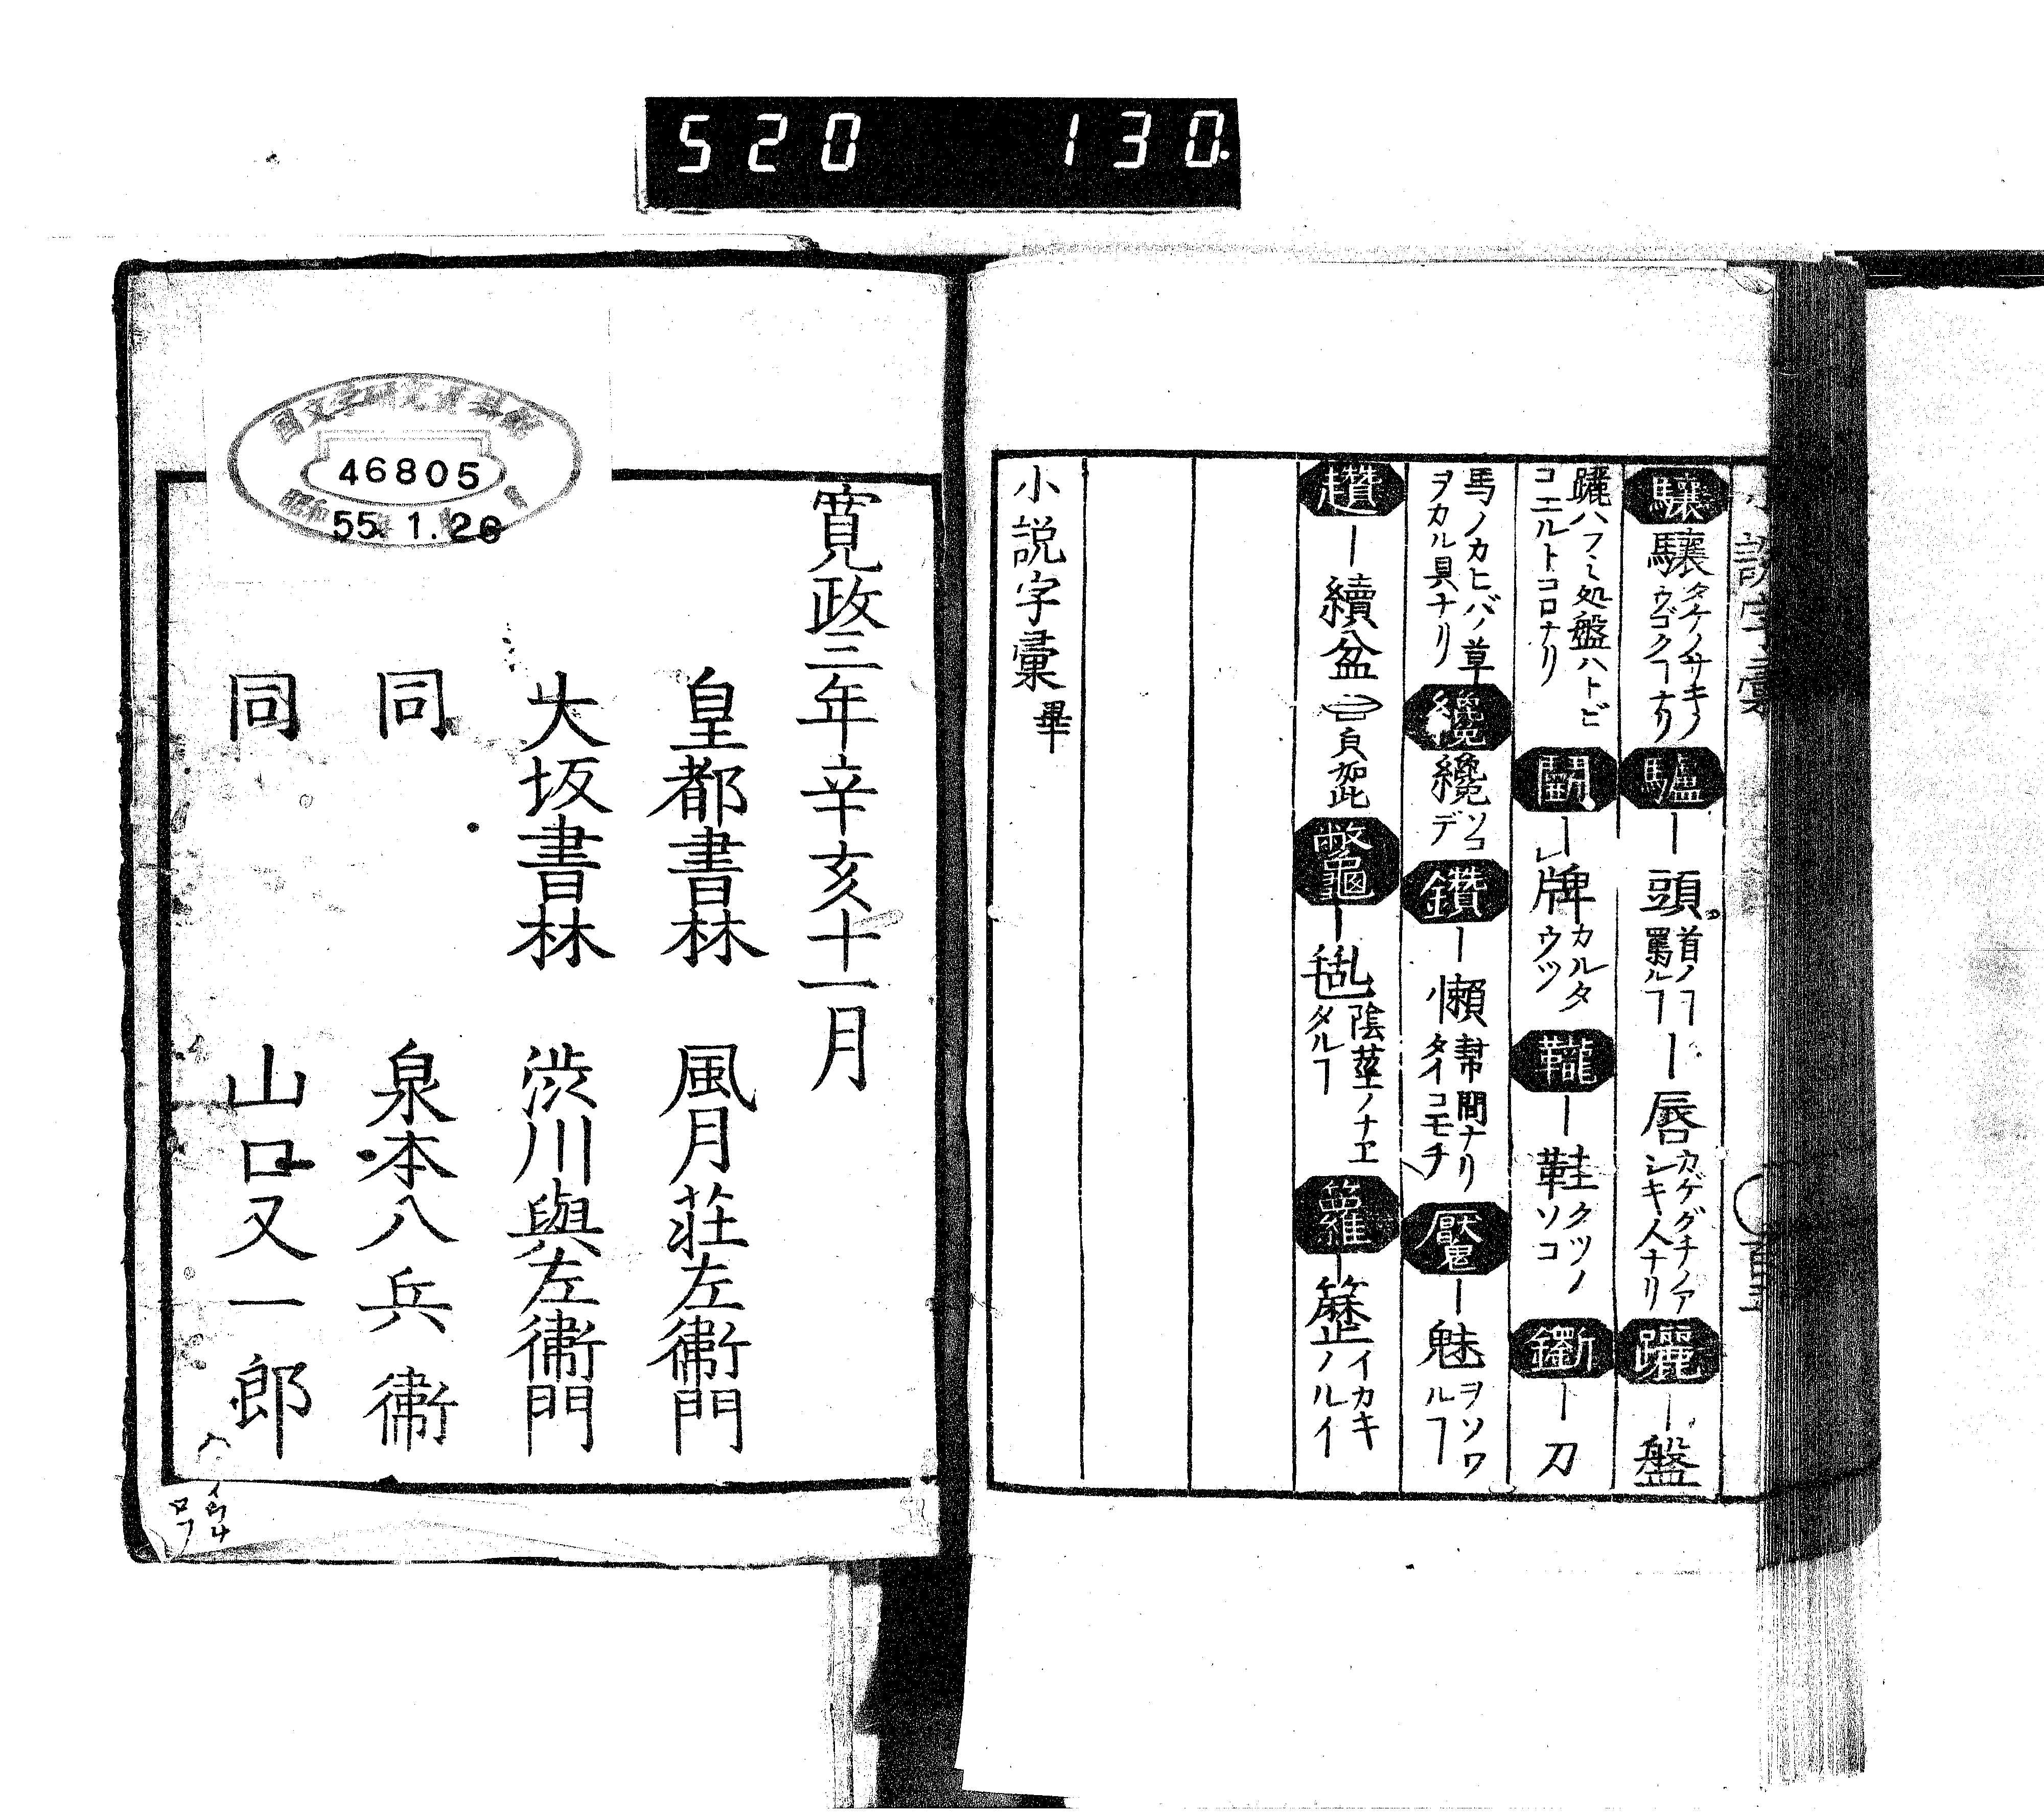 520 130.
小説字彙
驤 驤タケノサキノウゴクヿナリ 驢 ー頭首ノヿヲ罵ルヿ ー唇カゲグチノアシキ人ナリ 躧 ー盤
躧ハフミ処盤ハトビコエルトコロナリ ー牌カルタウツ ー鞋クツノソコ ー刀
馬ノカヒバノ草ヲカル具ナリ 纔 纔ソコデ 鑽 ー懶幇間ナリタイコモチ 魘 ー魅ヲソワルヽヿ
趲 ー續盆 ー毡陰莖ノナヱタルヿ 籮 ーイカキノルイ
小説字彙畢
寛政三年辛亥十一月
皇都書林 風月荘左衞門
大坂書林 渋川與左衞門
同 泉本八兵衞
同 山口又一郎
國文学研究資料館
46805
昭和
55.1.26